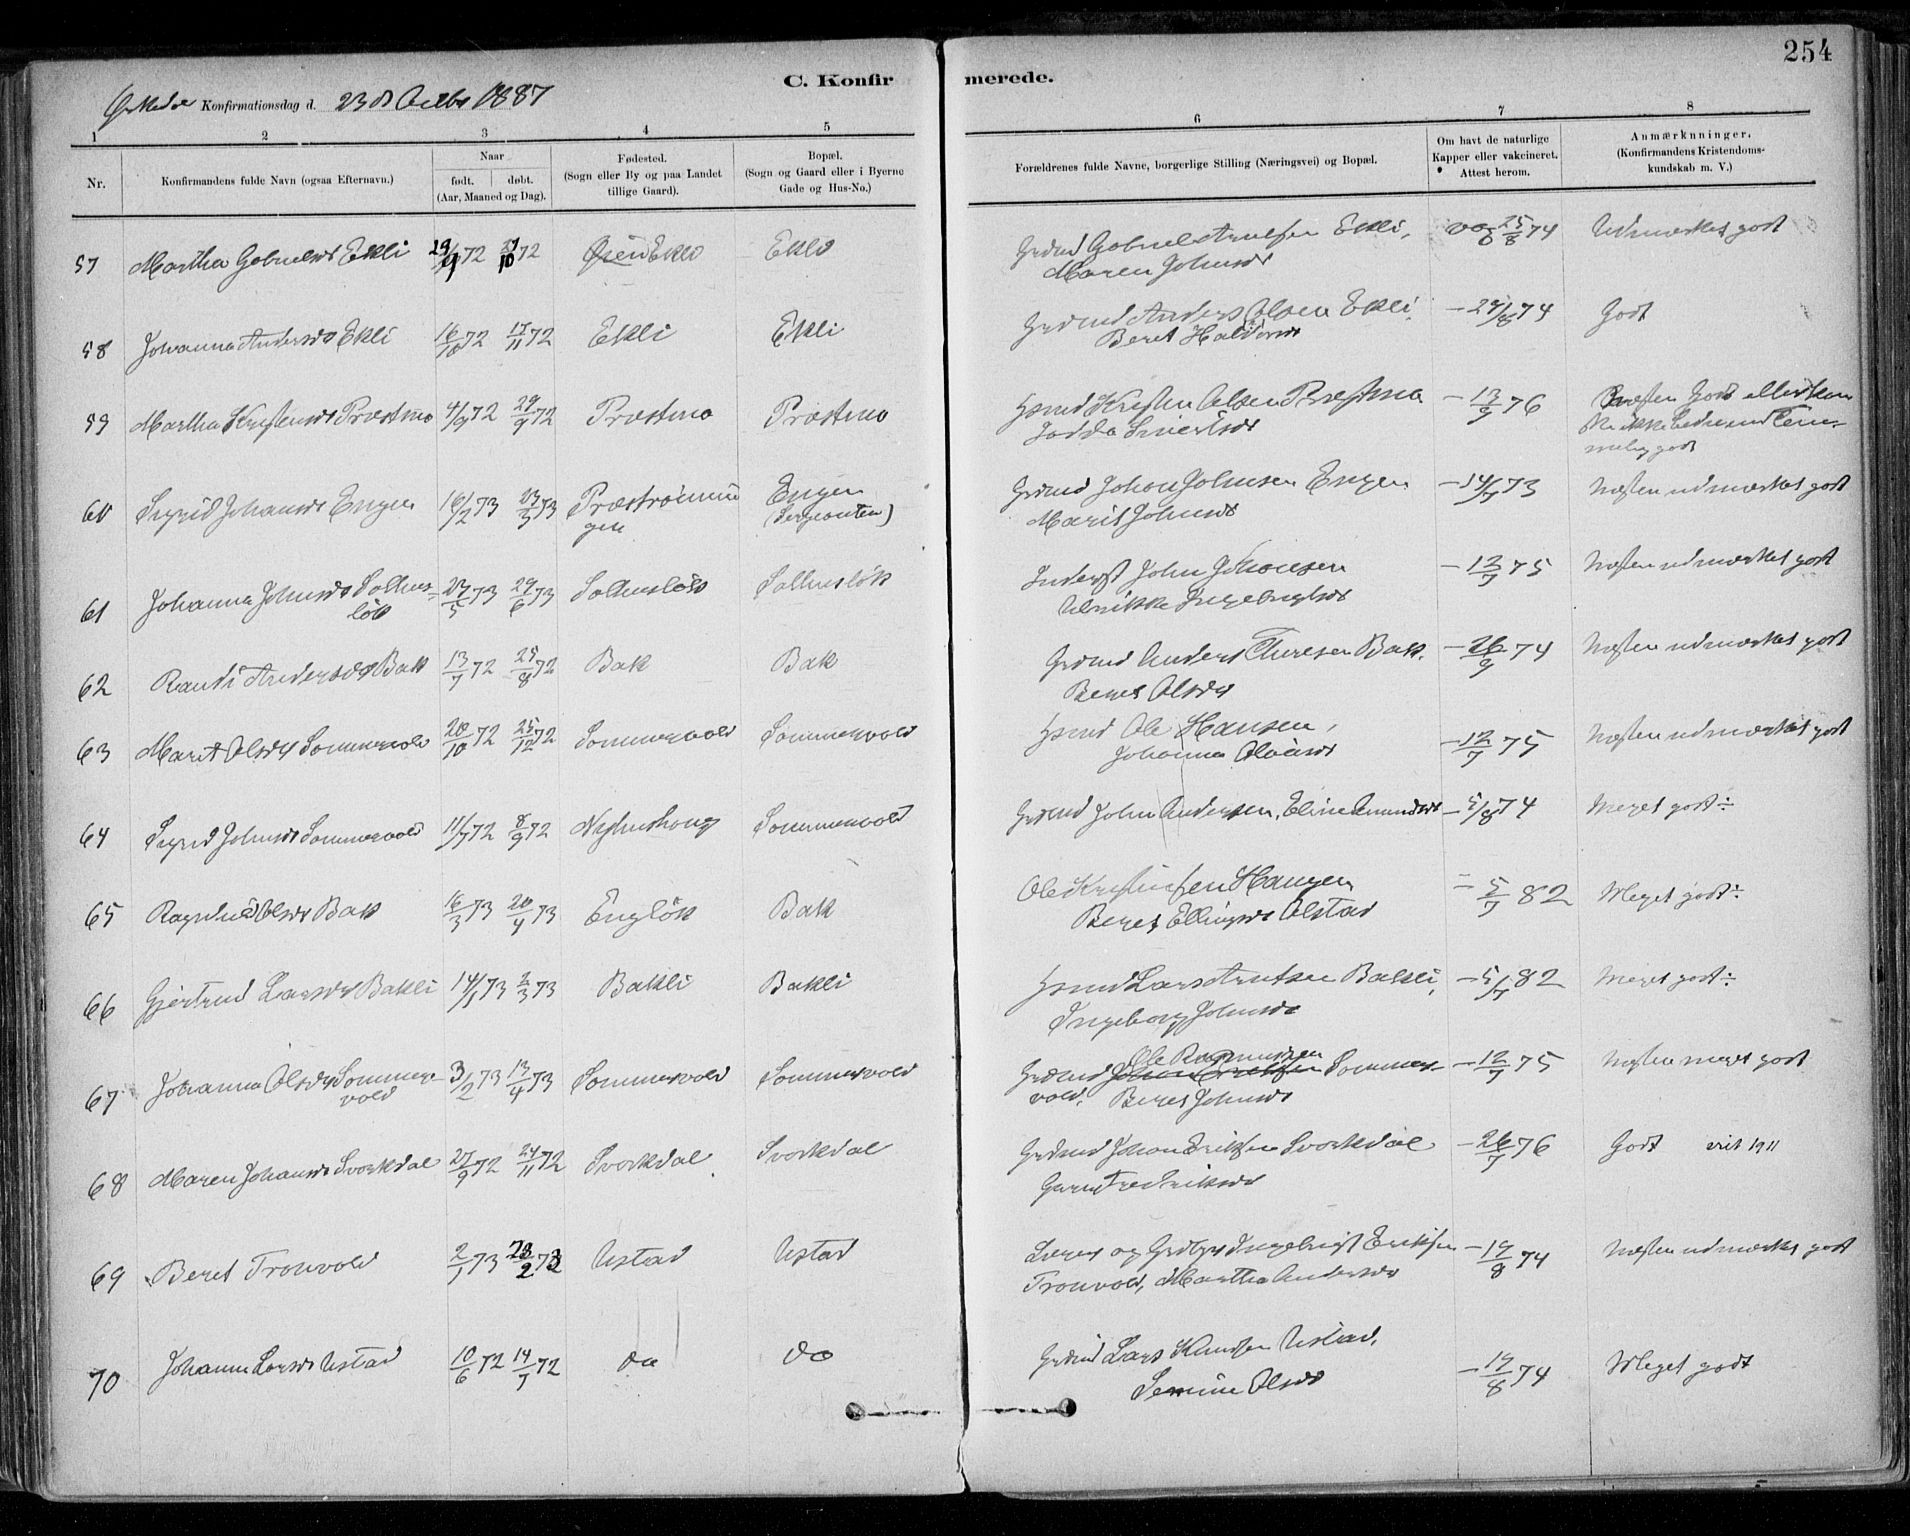 254
C. Konfirmerede.
Konfirmationsdag d. 23d Octbr 1887
1 2 3 4 5 6 7 8
Nr.
Konfirmandens fulde Navn (ogsaa Efternavn.)
Naar
født. døbt.
(Aar, Maaned og Dag).
Fødested.
(Sogn eller By og paa Landet
tillige Gaard).
Bopæl.
(Sogn og Gaard eller i Byerne
Gade og Hus-No.)
Forældrenes fulde Navne, borgerlige Stilling (Næringsvei) og Bopæl.
Om havt de naturlige
Kapper eller vakcineret.
Attest herom.
Anmærkninger.
(Konfirmandens Kristendoms-
kundskab m. V.)
57 Martha Gabrielsd Ekli 29/9 72 27/10 72 Ekli Ekli Grdmd Gabriel Ekli, 25/8 74 Udmærket godt
Maren Johnsd
58 Johanna Andersd Ekli 16/10 72 17/11 72 Ekli Ekli Grdmd Anders Olsen Ekli. - 29/8 74 Godt
Beret Haldorsd
59 Martha Kristensd Præstmo 4/9 72 29/9 72 Præstmo Præstmo Hsmd Kristen Olsen Præstmo - 13/9 76 Næsten Godt eller
Sivertsd
godt
60 Sigrid Johansd Engen 16/2 73 23/3 73 Engen Grdmd Johan Johnsen Engen - 14/7 73 Næsten udmærket godt
gen (Sergeanten) Marit Johnsd
61 Johanna Johnsd Solhus- 27/5 73 29/6 73 Solhusløk Solhusløk Inderst John Johansen - 13/7 75 Næsten udmærket godt
løk Ulrikke Ingebrigtsd
62 Randi Andersd Bak 13/7 72 25/8 72 Bak Bak Grdmd Anders Bak. - 26/9 74 Næsten udmærket godt
Beret Olsd
63 Marit Olsd Sommervold 20/10 72 25/12 72 Sommervold Sommervold Hsmd Ole Hansen, - 12/7 75 Næsten udmærket godt
Johanna
64 Sigrid Johnsd Sommervold 11/7 72 8/9 72 Sommervold Grdmd John Andersen, Eline Amundsd - 5/8 74 Meget godt ÷
65 Ragnhild Olsd Bak 16/3 73 20/4 73 Engløk Bak Ole Kristensen Haugen - 5/7 82 Meget godt ÷
Beret Ellingsd Olstad
66 Gjertrud Larsd Bakli 14/1 73 2/3 73 Bakli Bakli Hsmd Lars Bakli, - 5/7 82 Meget godt ÷
Ingeborg Johnsd
Ole Rasmussen
67 Johanna Olsd Sommer- 3/2 73 13/4 73 Sommervold Sommervold Grdmd Sommer- - 12/7 75 Næsten meget godt
vold vold, Beret Johnsd
68 Maren Johansd Svorkdal 27/9 72 24/11 72 Svorkdal Svorkdal Grdmd Johan Eriksen Svorkdal - 26/7 76 Godt 1911
69 Beret Tronvold 2/1 73 23/2 73 Ustad Ustad Lærer og Ingebrigt Eriksen - 19/8 74 Næsten udmærket godt
Tronvold, Martha Andersd
70 Johanna Larsd Ustad 10/6 72 14/7 72 do do Grdmd Lars Knudsen Ustad, - 19/8 74 Meget godt
Olsd